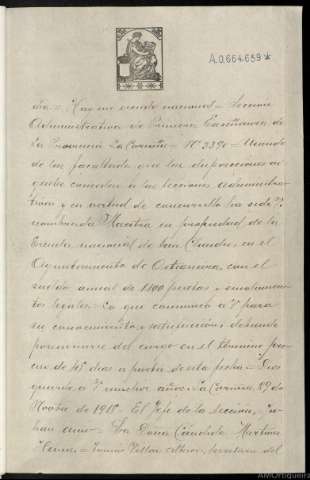 A.0.664.689*
dio = Hay un escudo nacional = Sección
Administrativa de Primera Enseñanza de
la Provincia La Coruña = Nº 2390 = Usando
de las facultades que las disposiciones vi
gentes conceden a las Secciones administra
tivas y en virtud de concursillo ha sido Vd.
nombrada Maestra en propiedad de la
Escuela nacional de San Claudio, en el
Ayuntamiento de Ortigueira, con el
sueldo anual de 1100 pesetas y emolumentos
legales = Lo que comunico a V. para
su conocimiento y satisfacción, debiendo
posesionarse del cargo en el término preci
so de 45 días a partir de esta fecha = Dios
guarde a V. muchos años. La Coruña, 27 de
de 1918 = El Jefe de la Sección,
= Sra Doña Cándida Martínez
= secretario del
AMOrtigueira